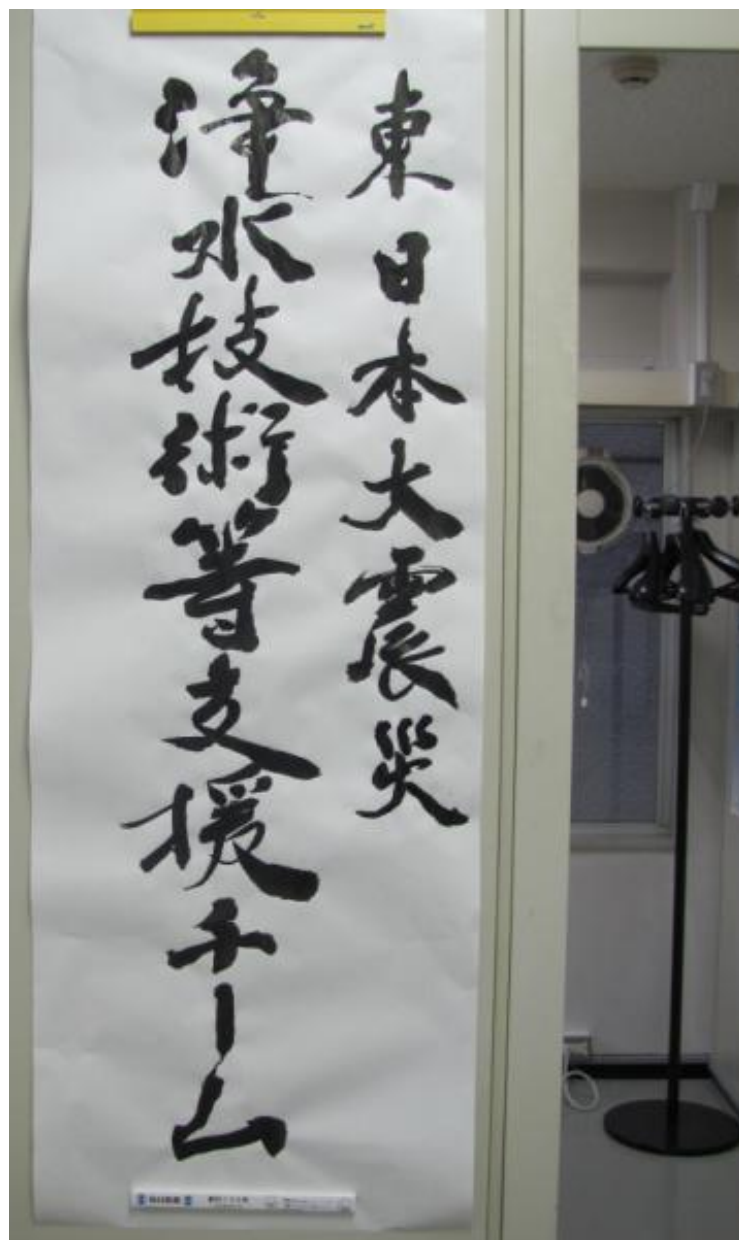 東日本大震災
浄水技術等支援チーム